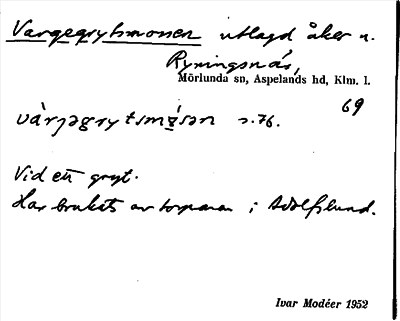 Vargegrytsmossen utlagd åker u.
Ryningsnäs,
Mörlunda sn, Aspelands hd, Klm. l.
69
s. 76.
Vid ett gryt.
Har brukats av torparen i Adolfslund.
Ivar Modéer 1952